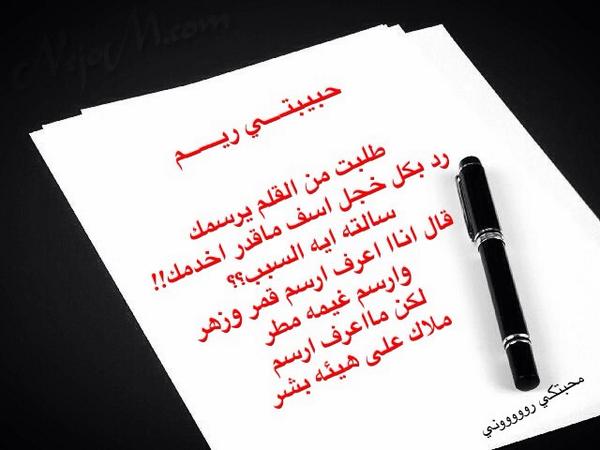 NsjoM.com
حبيبتـــي ريـــم
طلبت من القلم يرسمك
رد بكل خجل اسف ماقدر اخدمك!!
سالته ايه السبب؟؟
قال اناا اعرف ارسم قمر وزهر
وارسم غيمه مطر
لكن مااعرف ارسم
ملاك على هيئه بشر
محبتكي رووووووني